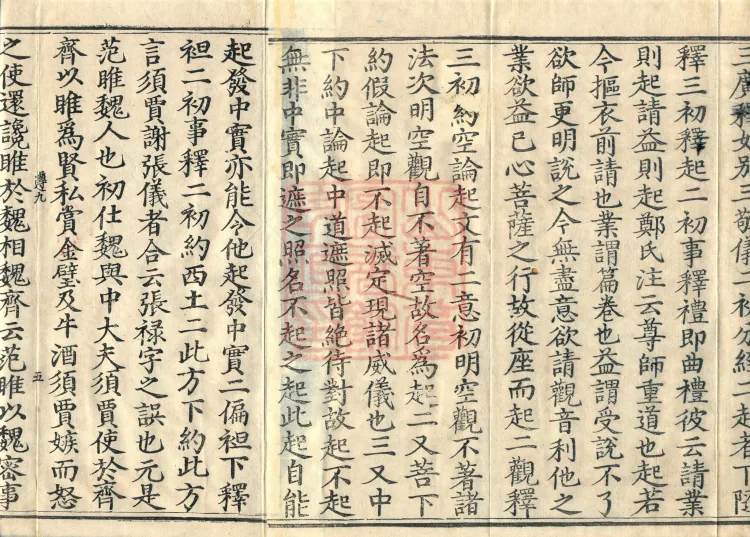 三廣釋妙別二敬儀一初分經二起者下
釋三初釋起二初事釋禮即曲禮彼云請業
則起請益則起鄭氏注云尊師重道也起若
今摳衣前請也業謂篇卷也益謂受說不了
欲師更明說之今無盡意欲請觀音利他之
業欲益己心菩薩之行故從座而起二觀釋
三初約空論起文有二意初明空觀不著諸
法次明空觀自不著空故名為起二又菩下
約假論起即不起滅定現諸威儀也三又中
下約中論起中道遮照皆絕待對故起不起
無非中實即遮之照名不起之起此起自能
起發中實亦能令他起發中實二偏袒下釋
袒二初事釋二初約西土二此方下約此方
言須賈謝張儀者合云張祿字之誤也元是
范睢魏人也初仕魏與中大夫須賈使於齊
齊以睢為賢私賞金璧及牛酒須賈嫉而怒
遵九
五
之使還讒睢於魏相魏齊云范睢以魏密事